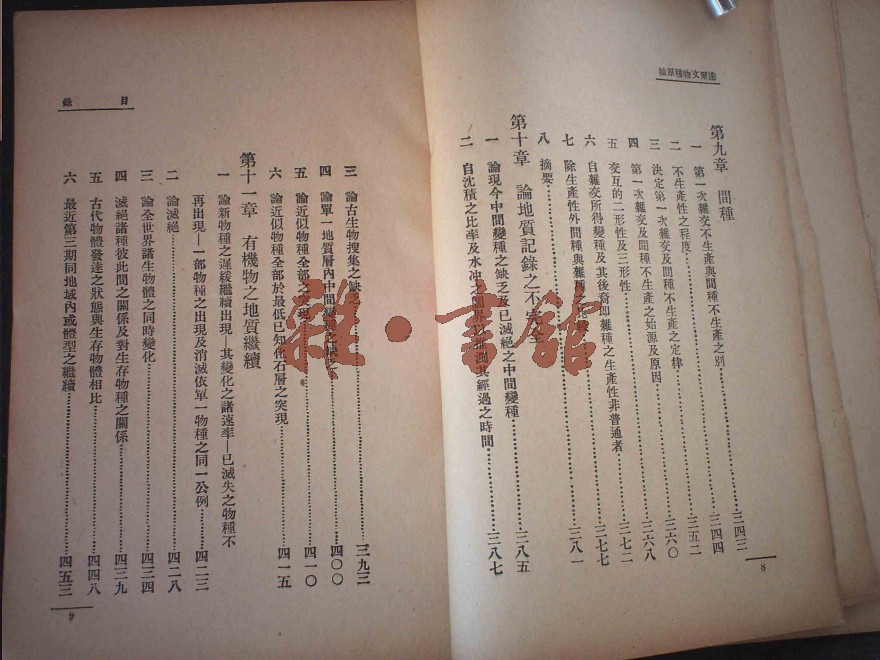 達爾文物種原始
第九章 間種……三四三
一 第一次雜交不生產與間種不生產之別……三四四
二 不生產性之程度……三五二
三 決定第一次雜交及間種不生產之定律……三六〇
四 第一次雜交及間種不生產之始源及原因……三六八
五 交互的二形性及三形性……三七二
六 自雜交所得變種及其後裔即雜種之生產性非普通者……三七七
七 除生產性外間種與雜種之比較……三八一
八 摘要
第十章 論地質記錄之不完全……三八五
一 論現今中間變種之缺乏及已滅絕之中間變種
二 自沈積之比率及水沖之關界以推測其經過之時間……三八七
8
目錄
三 論古生物搜集之缺乏……三九三
四 論單一地質層內中間變種之缺乏……四〇〇
五 論近似物種全部之突現……四一〇
六 論近似物種全部於最低已知化石層之突現……四一五
第十一章 有機物之地質繼續
一 論新物種之遲緩繼續出現—其變化之諸速率—已滅失之物種不
再出現—一部物種之出現及消滅依單一物種之同一公例……四二三
二 論滅絕……四二八
三 論全世界諸生物體之同時變化……四三四
四 滅絕諸種彼此間之關係及對生存物種之關係……四三九
五 古代物體發達之狀態與生存物體相比……四四八
六 最近第三期同地域內或體型之繼續……四五三
9
雜·書館